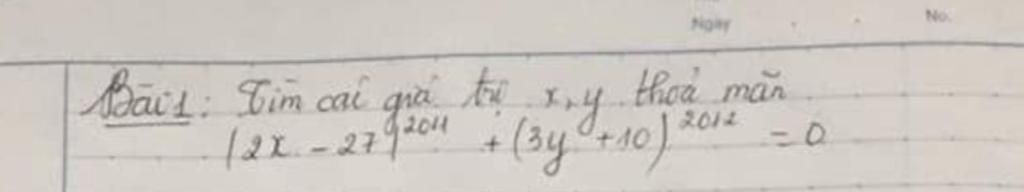 Ngày No.
Bài 1: Tìm cái giá trị x, y thoả mãn
|2x - 27|^2011 + (3y + 10)^2012 = 0